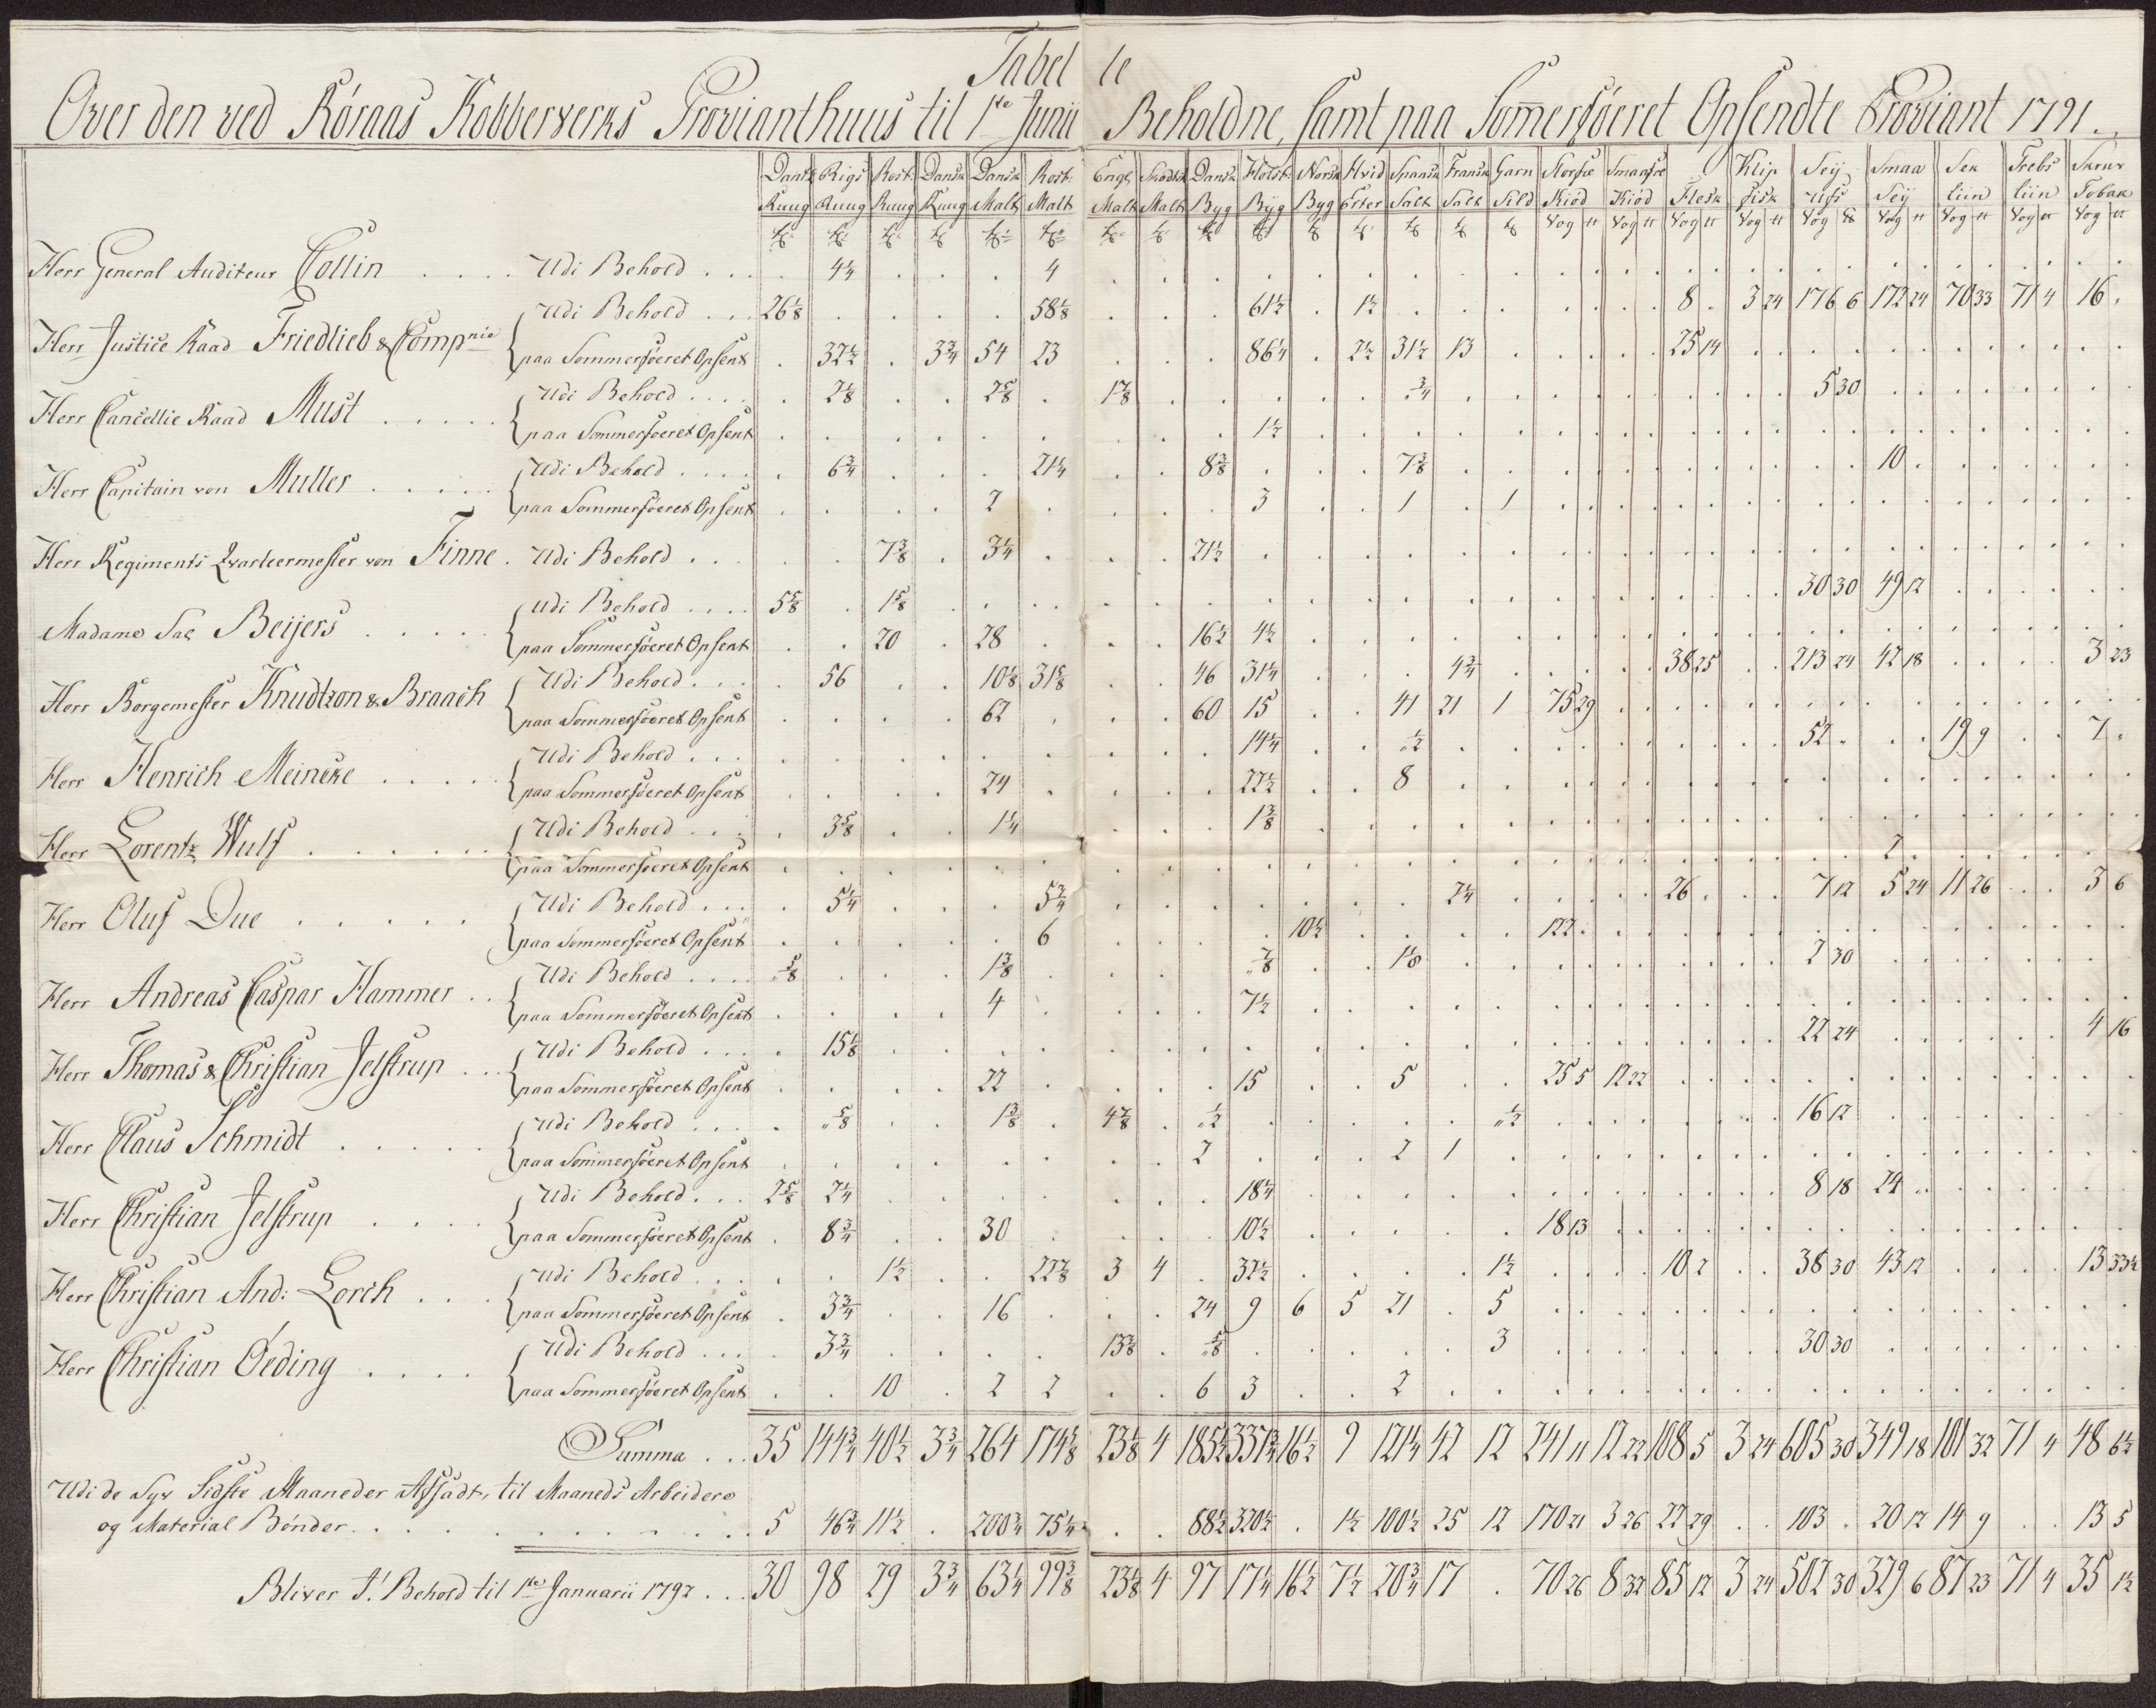 Tabelle
Over den ved Röraas Kobberverks Provianthuus til 1ste Junii Beholdne, samt paa Somersöeret Opsendte Proviant 1791.
Dansk Rigs Rost: Dansk Dansk Rost: Engl: Skodsk Dansk Holst: Norsk Hvid Spansk Fransk Garn Storfæ Smaafæ Klip Sey Smaa Sek Trebs Skrue
Ruug Ruug Ruug Ruug Malt Malt Malt Malt Byg Byg Byg Erter Salt Salt Sild Kiöd Kiöd Flesk fisk Ufs Sey Liin Liin Tobak
Herr General Auditeur Collin . . . . Udi Behold . . . 4¼ 4
Herr Justice Raad Friedlieb & Compnie
Udi Behold . . . 26⅛ 58⅛ 61½ 1½ 8 . 3 24 176 6 172 24 70 33 71 4 16 .
paa Sommersöeret Opsent 32½ 3¾ 54 23 86¼ 2½ 31½ 13 25 14
Herr Cancellie Raad Must . . . . .
Udi Behold . . . . 2⅛ 2⅝ 1⅞ ¾ 5 30
paa Sommersöeret Opsent 1½
Herr Capitain von Muller . . . . .
Udi Behold . . . . 6¾ 21¼ 8⅜ 7⅜ 10 .
paa Sommersöeret Opsent 2 3 1 1
Herr Regiments Qvarteermester von Finne . Udi Behold . . . 7⅜ 3¼ 21½
Madame Sal Beijers . . . . .
Udi Behold . . . . 5⅝ 1⅝ 30 30 49 12
paa Sommersöeret Opsent 20 28 16½ 4½
Herr Borgemester Knudtzon & Braach
Udi Behold . . . 56 10⅛ 31⅝ 46 31¼ 4¾ 38 25 213 24 42 18 3 23
paa Sommersöeret Opsent 62 60 15 41 21 1 75 29
Herr Henrich Meincke . . . .
Udi Behold . . . 14¼ ½ 52 . 19 9 7 .
paa Sommersöeret Opsent 24 22½ 8
Herr Lorentz Wulf . . . . .
Udi Behold . . . 3⅝ 1¼ 1⅜
paa Sommersöeret Opsent 2 .
Herr Oluf Due . . . . .
Udi Behold . . . 5¼ 5¾ 2¼ 26 . 7 12 5 24 11 26 3 6
paa Sommersöeret Opsent 6 10½ 122 .
Herr Andreas Caspar Hammer . .
Udi Behold . . . . ⅝ 1⅜ ⅞ 1⅛ 2 30
paa Sommersöeret Opsent 4 7½
Herr Thomas & Christian Jelstrup . . .
Udi Behold . . . 15⅛ 22 24 4 16
paa Sommersöeret Opsent 22 15 5 25 5 12 22
Herr Claus Schmidt . . . . .
Udi Behold . . . . ⅝ 1⅜ 4⅞ ½ ½ 16 12
paa Sommersöeret Opsent 2 2 1
Herr Christian Jelstrup . . . .
Udi Behold . . . 2⅝ 2¼ 18¼ 8 18 24 .
paa Sommersöeret Opsent 8¾ 30 10½ 18 13
Herr Christian And: Lorch . . .
Udi Behold . . . . 1½ 22⅞ 3 4 32½ 1½ 10 2 38 30 43 12 13 33½
paa Sommersöeret Opsent 3¾ 16 24 9 6 5 21 5
Herr Christian Öeding . . . .
Udi Behold . . . 3¾ 13⅜ ⅝ 3 30 30
paa Sommersöeret Opsent 10 2 2 6 3 2
Summa . . . 35 144¾ 40½ 3¾ 264 174⅝ 23⅛ 4 185½ 337¾ 16½ 9 121¼ 42 12 241 11 12 22 108 5 3 24 605 30 349 18 101 32 71 4 48 6½
Udi de Syv Sidste Maaneder Afsadt, til Maaneds Arbeidere
og Material Bönder . . . 5 46¾ 11½ . 200¾ 75¼ . . 88½ 320½ . 1½ 100½ 25 12 170 21 3 26 22 29 . . 103 . 20 12 14 9 . . 13 5
Bliver I: Behold til 1ste Januarii 1792 . . . 30 98 29 3¾ 63¼ 99⅜ 23⅛ 4 97 17¼ 16½ 7½ 20¾ 17 . 70 26 8 32 85 12 3 24 502 30 329 6 87 23 71 4 35 1½